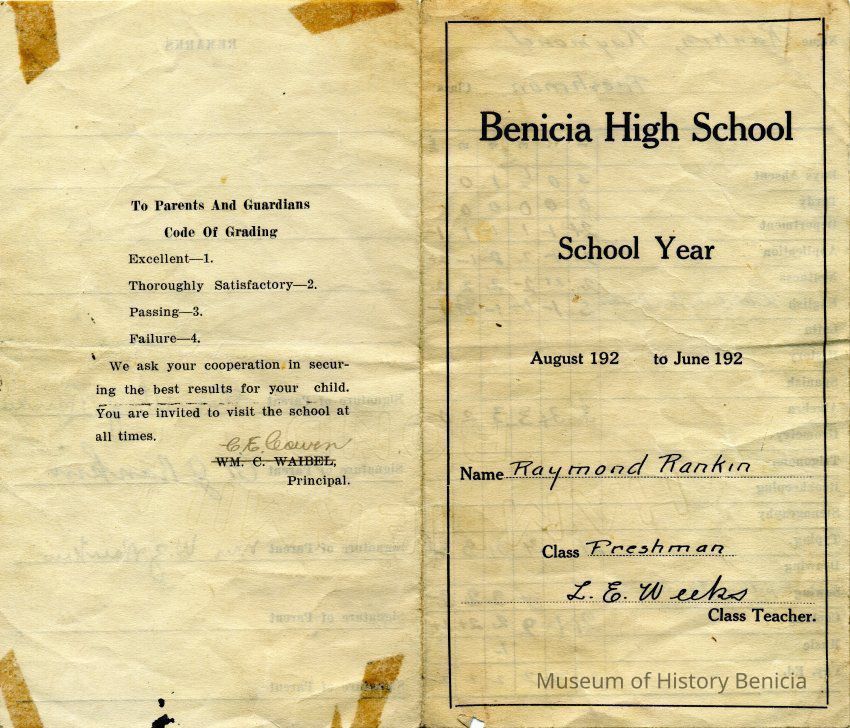 To Parents And Guardians
Code Of Grading
Excellent—1.
Thoroughly Satisfactory—2.
Passing—3.
Failure—4.
We ask your cooperation in secur-
ing the best results for your child.
You are invited to visit the school at
all times.
C. E. Cowen
WM. C. WAIBEL,
Principal.
Benicia High School
School Year
August 192 to June 192
Name Raymond Rankin
Class Freshman
L. E. Weeks
Class Teacher.
Museum of History Benicia